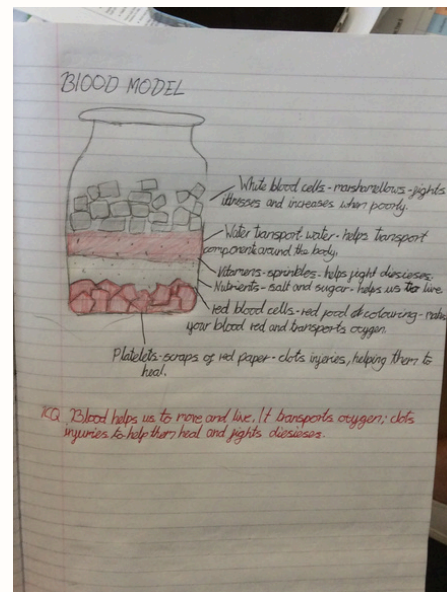 BLOOD MODEL
White blood cells - marshmellows - fights
illnesses and increases when poorly.
Water transport - water - helps transport
components around the body.
Vitamens - sprinkles - helps fight diesieses.
Nutrients - salt and sugar - helps us to live.
red blood cells - red food colouring - makes
your blood red and transports oxygen.
Platelets - scraps of red paper - clots injeries, helping them to
heal.
KQ Blood helps us to move and live. It transports oxygen; clots
injuries to help them heal and fights diesieses.